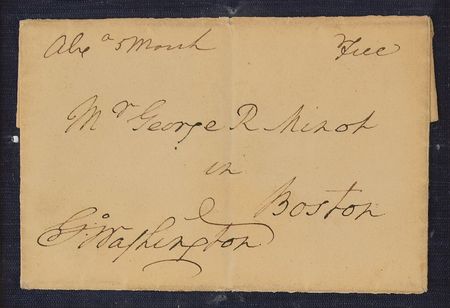 Alexa 5 March Free
Mr George R Minot
in
Boston
Go Washington